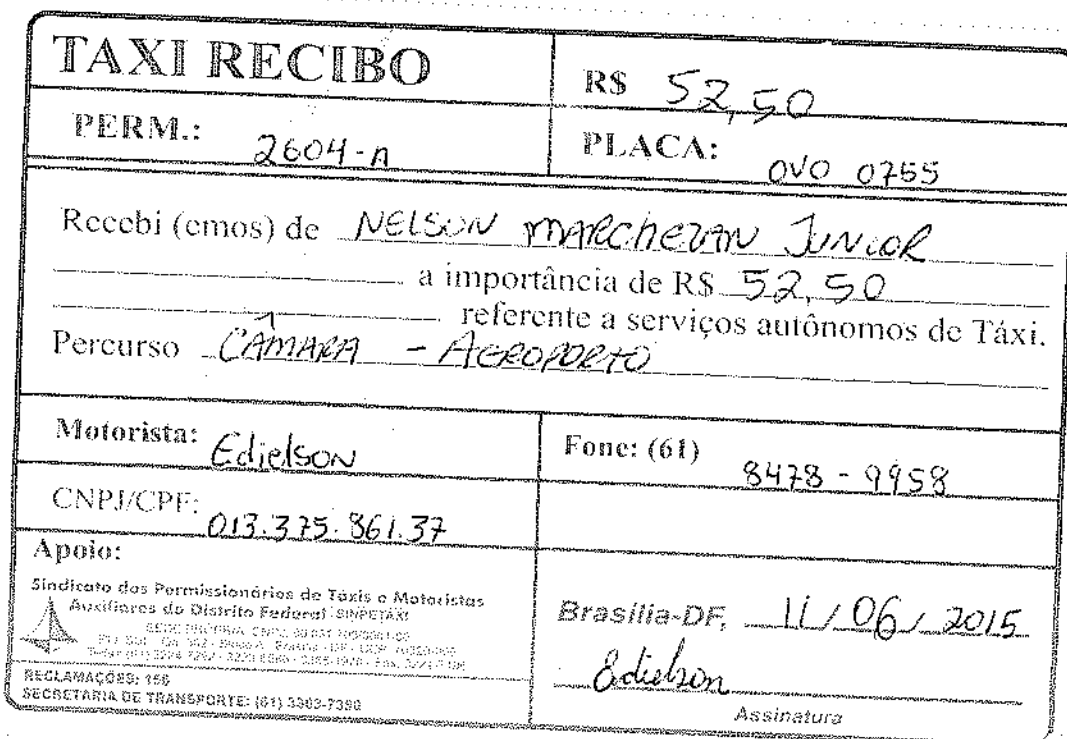 TAXI RECIBO
R$ 52,50
PERM.: 2604-A
PLACA: OVO 0755
Recebi (emos) de NELSON MARCHEZAN JUNIOR
a importância de R$ 52,50
referente a serviços autônomos de Táxi.
Percurso CÂMARA - AEROPORTO
Motorista: Edielson
Fone: (61) 8478-9958
CNPJ/CPF: 013.375.861.37
Apoio:
Sindicato dos Permissionários de Táxis e Motoristas
Auxiliares do Distrito Federal - SINPETAXI
Brasília-DF, 11/06/2015
Edielson
Assinatura
RECLAMAÇÕES: 156
SECRETARIA DE TRANSPORTE: (61)